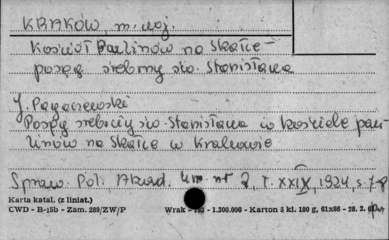 KRAKÓW m. woj.
Kościół Paulinów na Skałce –
posąg srebrny św. Stanisława
J. Pagaczewski
Posąg srebrny św. Stanisława w kościele pau-
linów na Skałce w Krakowie
Spraw. Pol. Akad. Um. nr 7, t. XXIX, 1924, s. 7-8
Karta katal. (z liniat.)
CWD - B-15b - Zam. 289/ZW/P
Wrak - 1.200.000 - Karton 5 kl. 180 g, 61x86 - 28. 2.